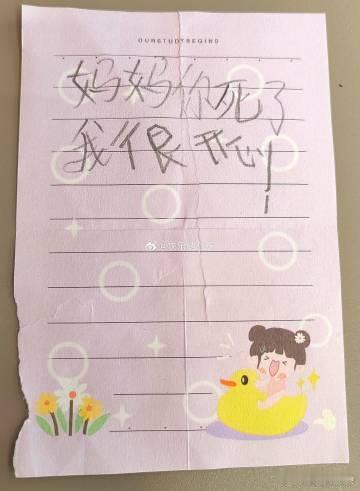 OURSTUDYBEGINS
妈妈你死了
我很开心!